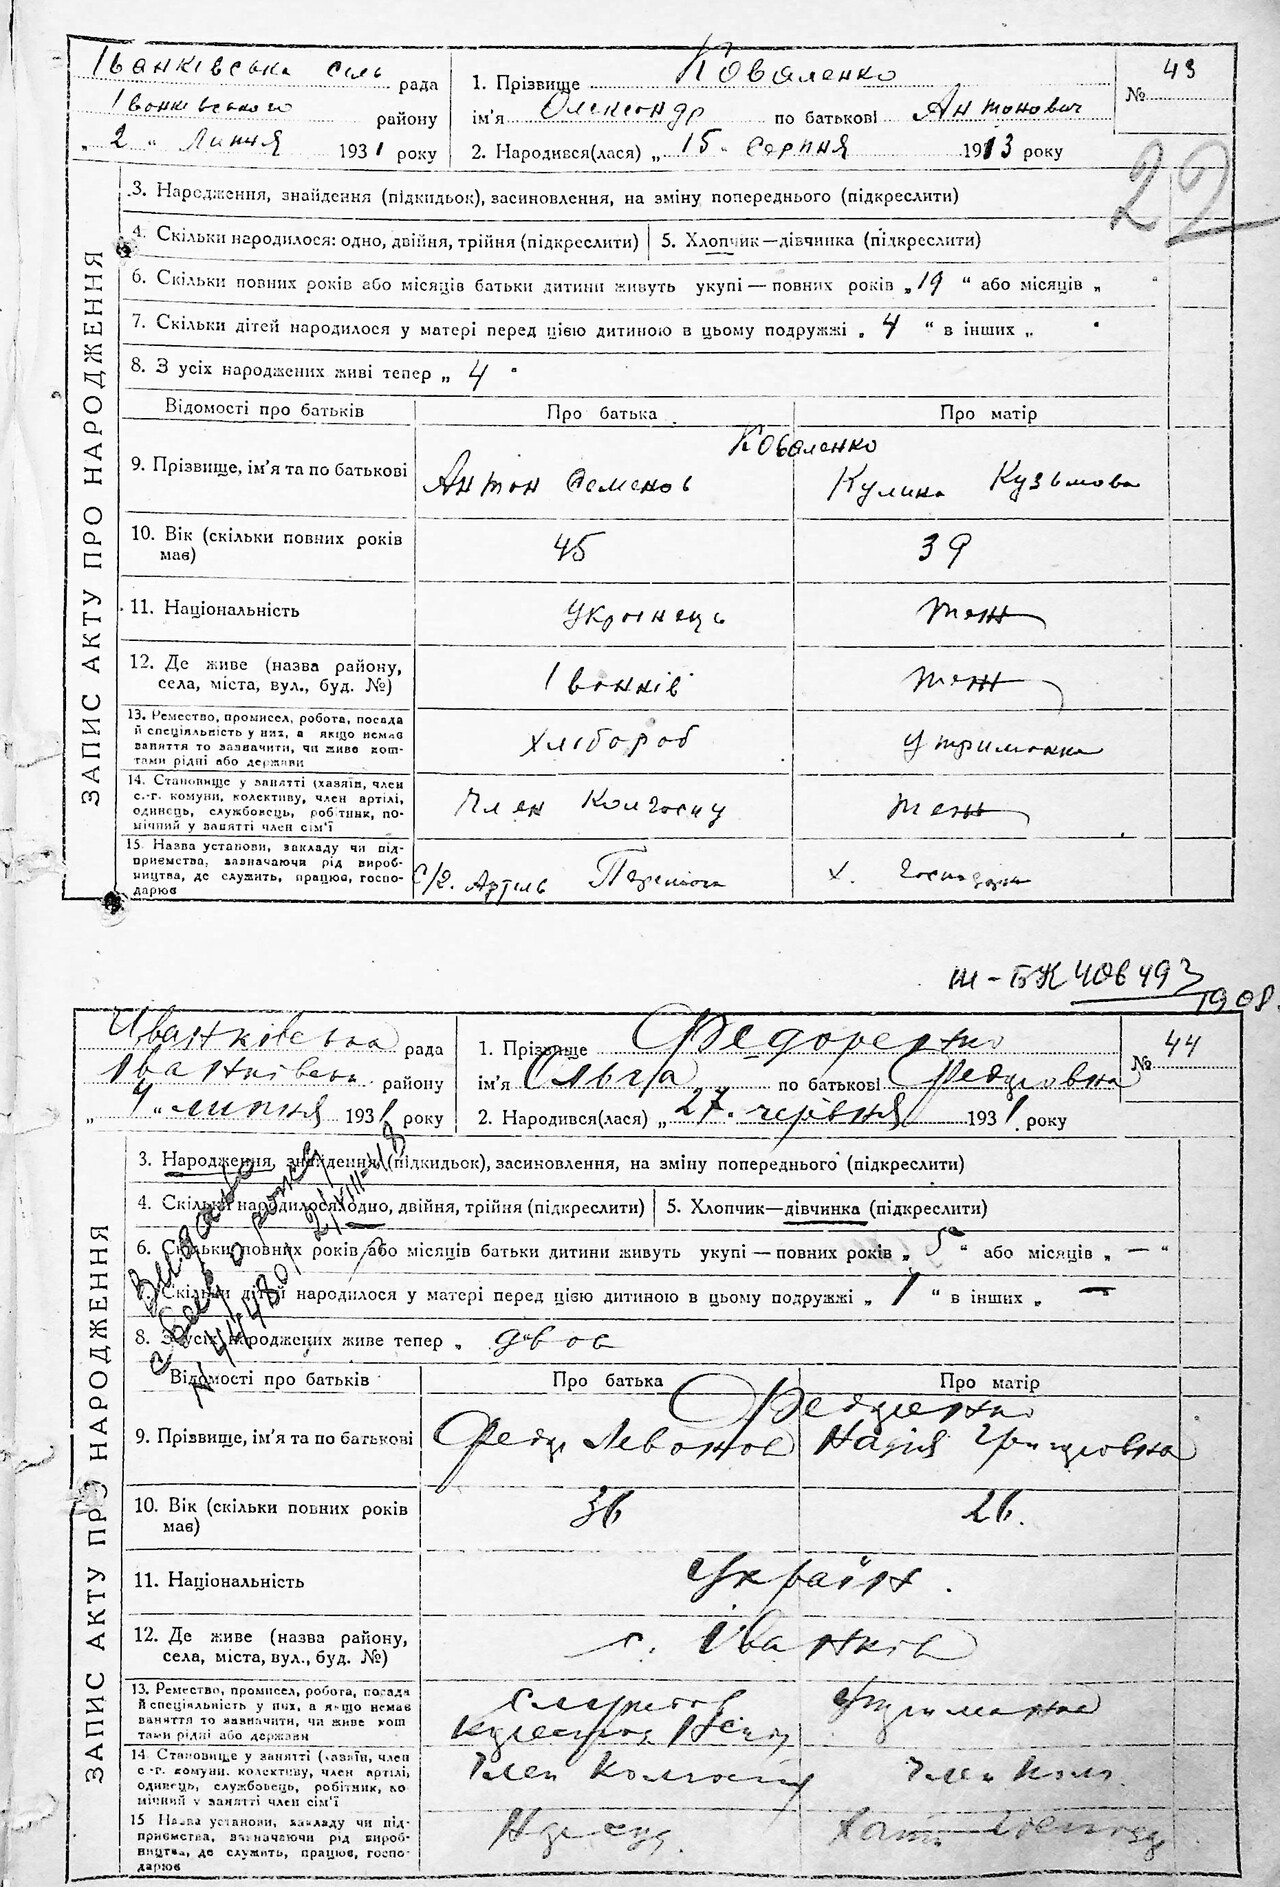 Іванківська сіль рада
Іванківського району
„ 2 „ Липня 1931 року
1. Прізвище Коваленко
ім'я Олександр по батькові Антонович
2. Народився(лася) „ 15 „ Серпня 1913 року
№ 43
22
ЗАПИС АКТУ ПРО НАРОДЖЕННЯ
3. Народження, знайдення (підкидьок), засиновлення, на зміну попереднього (підкреслити)
4. Скільки народилося: одно, двійня, трійня (підкреслити) 5. Хлопчик—дівчинка (підкреслити)
6. Скільки повних років або місяців батьки дитини живуть укупі — повних років „ 19 “ або місяців „
7. Скільки дітей народилося у матері перед цією дитиною в цьому подружжі „ 4 “ в інших „
8. З усіх народжених живі тепер „ 4 “
Відомості про батьків Про батька Про матір
Коваленко
9. Прізвище, ім'я та по батькові Антон Семенов Кулина Кузьмова
10. Вік (скільки повних років має) 45 39
11. Національність Українець тож
12. Де живе (назва району, села, міста, вул., буд. №) Іванків тож
13. Ремество, промисел, робота, посада й спеціяльність у них, а якщо немає заняття то зазначити, чи живе коштами рідні або держави Хлібороб утриманка
14. Становище у занятті (хазяїн, член с.-г. комуни, колективу, член артілі, одинець, службовець, робітник, помічний у занятті член сім'ї Член Колгоспу тож
15. Назва установи, закладу чи підприємства, зазначаючи рід виробництва, де служить, працює, господарює С/г. Артіль х.
406493
1908.
Іванківська рада
Іванківськ району
„ 4 „ липня 1931 року
1. Прізвище Федоренко
ім'я Ольга по батькові Федоровна
2. Народився(лася) „ 27 „ червня 1931 року
№ 44
ЗАПИС АКТУ ПРО НАРОДЖЕННЯ
3. Народження, знайдення (підкидьок), засиновлення, на зміну попереднього (підкреслити)
4. Скільки народилося: одно, двійня, трійня (підкреслити) 5. Хлопчик—дівчинка (підкреслити)
6. Скільки повних років або місяців батьки дитини живуть укупі — повних років „ 5 “ або місяців „ — “
7. Скільки дітей народилося у матері перед цією дитиною в цьому подружжі „ 1 “ в інших „ —
8. З усіх народжених живе тепер „ двоє
Відомості про батьків Про батька Про матір
Федоренко
9. Прізвище, ім'я та по батькові Федір Левонов Надія Григоровна
10. Вік (скільки повних років має) 36 26.
11. Національність Україн.
12. Де живе (назва району, села, міста, вул., буд. №) с. Іванків
13. Ремество, промисел, робота, посада й спеціяльність у них, а якщо немає заняття то зазначити, чи живе коштами рідні або держави Утриманка
14. Становище у занятті (хазяїн, член с.-г. комуни, колективу, член артілі, одинець, службовець, робітник, помічний у занятті член сім'ї Член Колгоспу Член Колг.
15 Назва установи, закладу чи підприємства, зазначаючи рід виробництва, де служить, працює, господарює